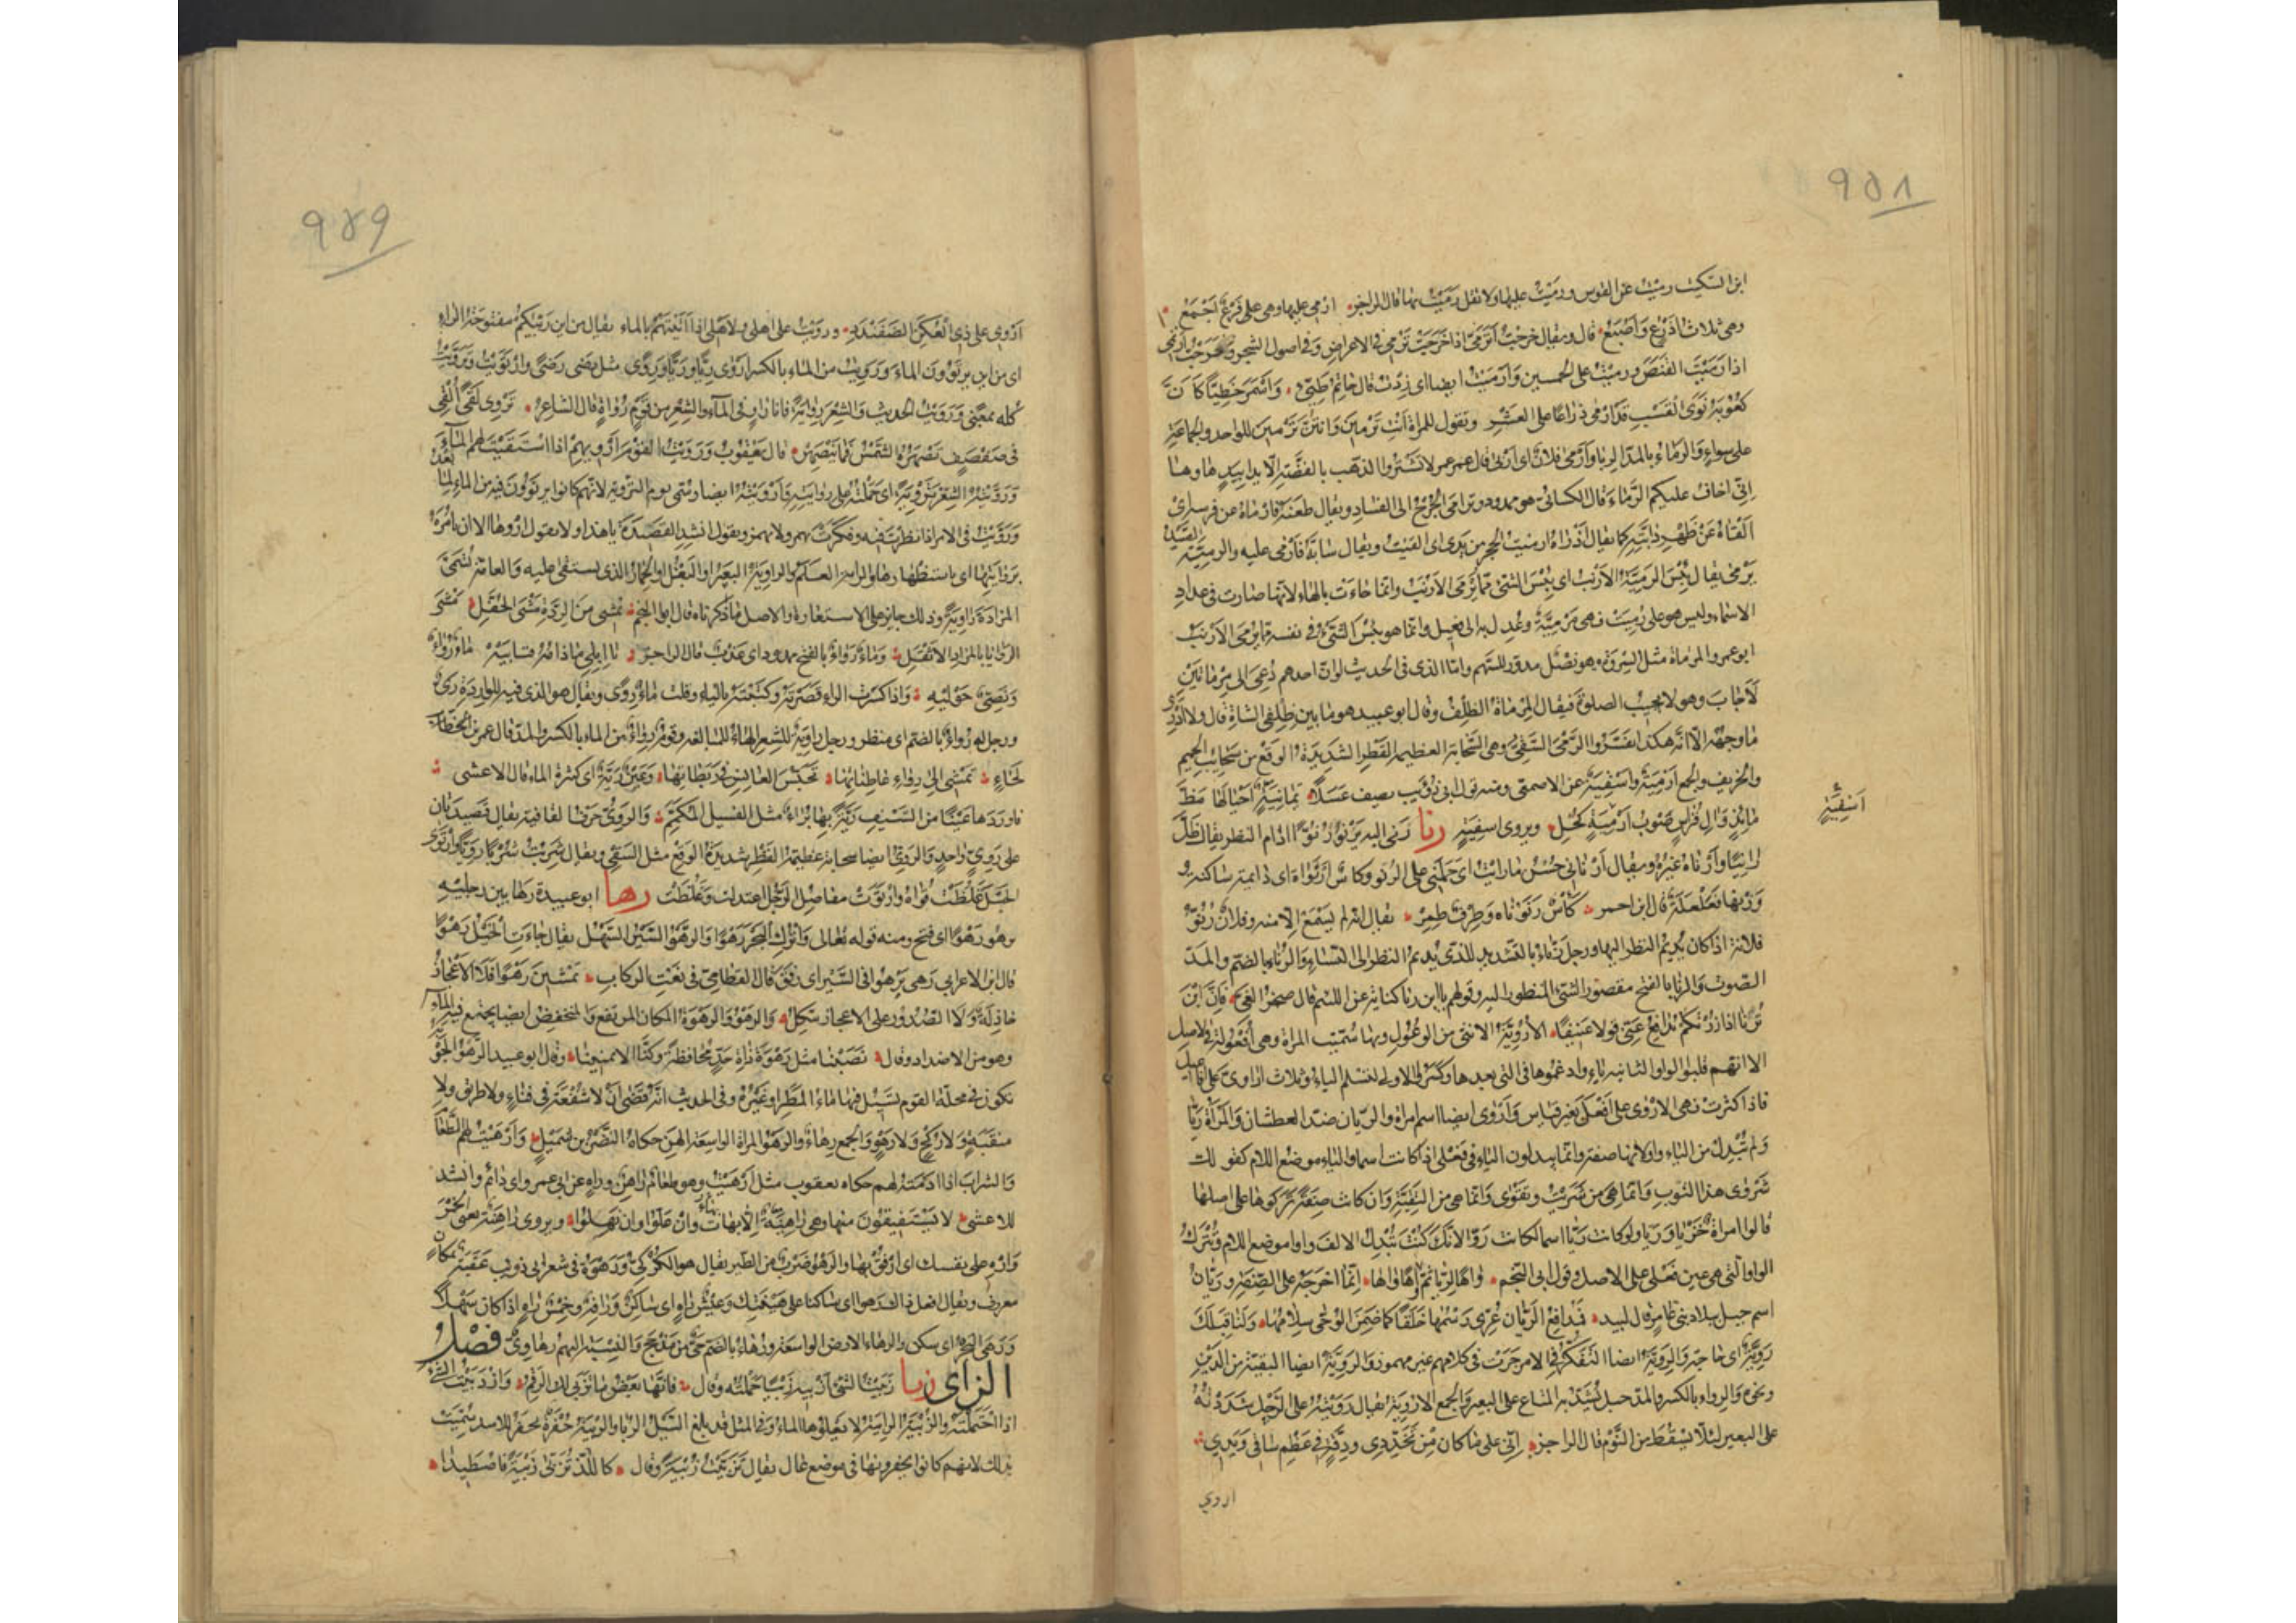 ٩٥٨
ابن السكيت رميت عن القوس ورميت عليها ولا تقل رميت بها قال الراجز ارمي عليها وهي فرع اجمع
وهي ثلاث اذرع واصبع قال ويقال خرجت اترمى اذا خرجت ترمي في الاغراض وفي اصول الشجر وخرجت ارتمي
اذا رميت القنص ورميت على الخمسين وارميت ايضا اي زدت قال حاتم طيئ واسمر خطيا كان
كعوبه نوى القسب قد ارمى ذراعا على العشر وتقول للمراة انت ترمين وانتن ترمين للواحدة والجماعة
على سواء والرماء بالمد الربا وارمى فلان اي اربى قال عمر لا تشتروا الذهب بالفضة الا يدا بيد ها وها
اني اخاف عليكم الرماء قال الكسائي هو ممدود وترامى الجرح الى الفساد ويقال طعنه فارماه عن فرسه اي
القاه عن ظهر دابته كما يقال اذراه وارميت الحجر من يدي اي القيت ويقال سابه فارمى عليه والرمية الصيد
يرمى يقال بئس الرمية الارنب اي بئس الشئ مما يرمى الارنب وانما جاءت بالهاء لانها صارت في عداد
الاسماء وليس هو على رميت فهي مرمية وعدل به الى فعيل وانما هو بئس الشئ في نفسه مما يرمى الارنب
ابو عمرو المرماة مثل السروة وهو نصل مدور للسهم واما الذي في الحديث لو ان احدهم دعي الى مرماتين
لاجاب وهو لا يجيب الصلوة فيقال المرماة الظلف وقال ابو عبيد هو ما بين ظلفي الشاة قال ولا ادري
ما وجهه الا انه هكذا يفسر والرمي السقي وهي السحابة العظيمة القطر الشديدة الوقع من سحائب الحميم
والخريف والجمع ارمية واسقية عن الاصمعي ومنه قول ابي ذؤيب يصف عسلا يمانية احيا لها مظ
مائد وآل قراس صوب ارمية كحل ويروى اسقية رنا رنى اليه يرنو رنوا اذا ادام النظر يقال ظل
رانيا وارناه غيره ويقال ارناني حسن ما رايت اي حملني على الرنو وكاس رنوناة اي دائمة ساكنة
ووزنها فعلعلة قال ابن احمر كاس رنوناة وطرف طمر يقال انه لم يسمع الا منه وفلان رنو
فلانة اذا كان يديم النظر اليها ورجل رناء بالتشديد للذي يديم النظر الى النساء والرناء بالضم والمد
الصوت والرنا بالفتح مقصور الشئ المنظور اليه وقولهم يا ابن رنا كناية عن اللئيم قال صخر الغي فان ابن
ترنى اذا زرتكم يدافع عني قولا عنيفا الاروية الانثى من الوعول وبها سميت المراة وهي افعولة في الاصل
الا انهم قلبوا الواو الثانية ياء وادغموها في التي بعدها وكسروا الاولى لتسلم الياء وثلاث اراوي على افاعيل
فاذا كثرت فهي الاروى على افعل بغير قياس واروى ايضا اسم امراة والريان ضد العطشان والمراة ريا
ولم تبدل من الياء واو لانها صفة وانما يبدلون الياء في فعلى اذا كانت اسما والياء موضع اللام كقولك
شروى هذا الثوب وانما هي من شريت وتقوى وانما هي من التقية وان كانت صفة تركوها على اصلها
قالوا امراة خزيا وريا ولو كانت ريا اسما لكانت روا لانك كنت تبدل الالف واوا موضع اللام وتترك
الواو التي هي عين فعلى على الاصل وقول ابي النجم واها لريا ثم واها واها انما اخرجه على الصفة وريان
اسم جبل ببلاد بني عامر قال لبيد فمدافع الريان عري رسمها خلقا كما ضمن الوحي سلامها ولنا قبلك
روية اي حاجة والروية ايضا التفكر في الامر جرت في كلامهم غير مهموزة والروية ايضا البقية من الدين
ونحوه والرواء بالكسر والمد حبل يشد به المتاع على البعير والجمع الاروية يقال رويته على الرجل شددته
على البعير لئلا يسقط من النوم قال الراجز اني على ما كان من تخددي ودقة في عظم ساقي ويدي
اروي
اسقية
٩٥٩
اروي على ذي العكن الضفندد ورويت على اهلي ولاهلي اذا اتيتهم بالماء يقال من اين ريتكم مفتوحة الراء
اي من اين يرتوون الماء ورويت من الماء بالكسر اروى ريا وريا وروى مثل رضى رضى وارتويت وترويت
كله بمعنى ورويت الحديث والشعر رواية فانا راو في الماء والشعر من قوم رواة قال الشاعر تروى لقى القي
في صفصف تصهره الشمس فما ينصهر قال يعقوب ورويت القوم ارويهم اذا استقيت لهم الماء
ورويته الشعر تروية اي حملته على روايته وارويته ايضا وسمي يوم التروية لانهم كانوا يرتوون فيه من الماء لما بعد
ورويت في الامر اذا نظرت فيه وفكرت يهمز ولا يهمز وتقول انشد القصيدة يا هذا ولا تقول اروها الا ان تامره
بروايتها اي باستظهارها والراية العلم والراوية البعير او البغل او الحمار الذي يستقى عليه والعامة تسمي
المزادة راوية وذلك جائز على الاستعارة والاصل ما ذكرناه قال ابو النجم تمشي من الردة مشي الحفل مشي
الروايا بالمزاد الاثقل وماء رواء بالفتح ممدود اي عذب قال الراجز يا ابلي ما ذامه فتابيه ماء رواء
ونصي حوليه واذا كسرت الراء قصرته وكتبته بالياء وقلت ماء روى ويقال هو الذي فيه للواردة ري
ورجل له رواء بالضم اي منظر ورجل راوية للشعر الهاء للمبالغة وقوم رواء من الماء بالكسر والمد قال عمر بن
لجاء تمشي الى رواء عاطناتها تحبس العانس في ريطاتها وعين رية اي كثيرة الماء قال الاعشى
فاوردها عينا من السيف رية بها براء مثل الفسيل المكمم والروي حرف القافية يقال قصيدتان
على روي واحد والروي ايضا سحابة عظيمة القطر شديدة الوقع مثل السقي ويقال شربت شربا رويا وارتوى
الحبل غلظت قواه وارتوت مفاصل الرجل اعتدلت وغلظت رها ابو عبيدة رها بين رجليه
يرهو رهوا اي فتح ومنه قوله تعالى واترك البحر رهوا والرهو السير السهل يقال جاءت الخيل رهوا
قال ابن الاعرابي رهى يرهو في السير اي رفق قال القطامي في نعت الركاب يمشين رهوا فلا الاعجاز
خاذلة ولا الصدور على الاعجاز تتكل والرهو والرهوة المكان المرتفع والمنخفض ايضا يجتمع فيه الماء
وهو من الاضداد وقال نصبنا مثل رهوة ذات حد محافظة وكنا الامنعينا وقال ابو عبيد الرهو الجوبة
تكون في محلة القوم تسيل فيها ماء المطر او غيره وفي الحديث انه قضى ان لا شفعة في فناء ولا طريق ولا
منقبة ولا ركح ولا رهو والجمع رهاء والرهو المراة الواسعة الهن حكاه النضر بن شميل وارهيت لهم الطعام
والشراب اذا ادمته لهم حكاه يعقوب مثل ارهنت وهو طعام راهن وراه عن ابي عمرو اي دائم وانشد
للاعشى لا يستفيقون منها وهي راهية الا بهات وان علوا وان نهلوا ويروى راهنة يعني الخمر
واره على نفسك اي ارفق بها والرهو ضرب من الطير يقال هو الكركي ورهوة في شعر ابي ذؤيب عقبة بمكان
معروف ويقال افعل ذلك رهوا اي ساكنا على هينتك وعيش راه اي ساكن ورافه وخمس راه اذا كان سهلا
ورهى البحر اي سكن والرهاء الارض الواسعة ورهاء بالضم حي من مذحج والنسبة اليهم رهاوي فصل
الزاى زبا زبيت الشئ ازبيه زبيا حملته وقال فانها بعض ما تزبي لك الرقم وازدبيت الشئ
اذا احتملته والزبية الرابية لا يعلوها الماء وفي المثل قد بلغ السيل الزبا والزبية حفرة تحفر للاسد سميت
بذلك لانهم كانوا يحفرونها في موضع عال يقال تزبيت زبية وقال كاللذ تزبى زبية فاصطيدا